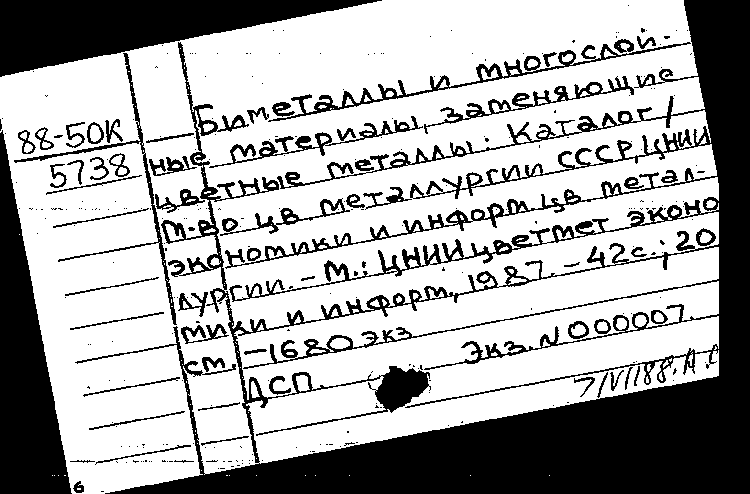 88-50К
5738
Биметаллы и многослой-
ные материалы, заменяющие
цветные металлы: Каталог /
М-во цв. металлургии СССР, ЦНИИ
экономики и информ. цв. метал-
лургии. – М.: ЦНИИцветмет эконо
мики и информ, 1987. – 42с.; 20
см. – 1680 экз
ДСП. Экз. N 000007.
7/VI188. А.
6